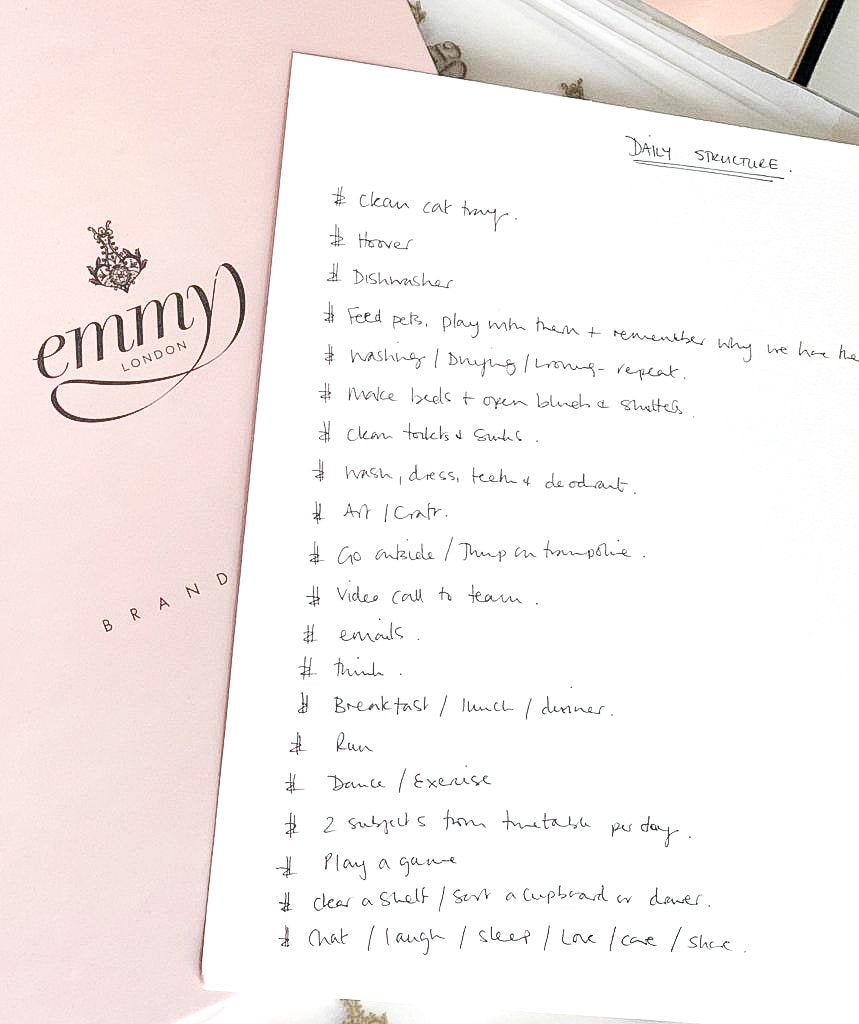 DAILY STRUCTURE.
# Clean cat tray.
# Hoover
# Dishwasher
# Feed pets, play with them + remember why we have the
# Washing / Drying / Ironing - repeat.
# Make beds + open blinds & shutters.
# Clean toilets & sinks.
# Wash, dress, teeth & deodrant.
# Art / Craft.
# Go outside / Jump on trampoline.
# Video call to team.
# emails.
# think.
# Breakfast / lunch / dinner.
# Run
# Dance / Exercise
# 2 subjects from timetable per day.
# Play a game
# Clear a shelf / Sort a cupboard or drawer.
# Chat / laugh / sleep / Love / care / share.
emmy
LONDON
BRAND